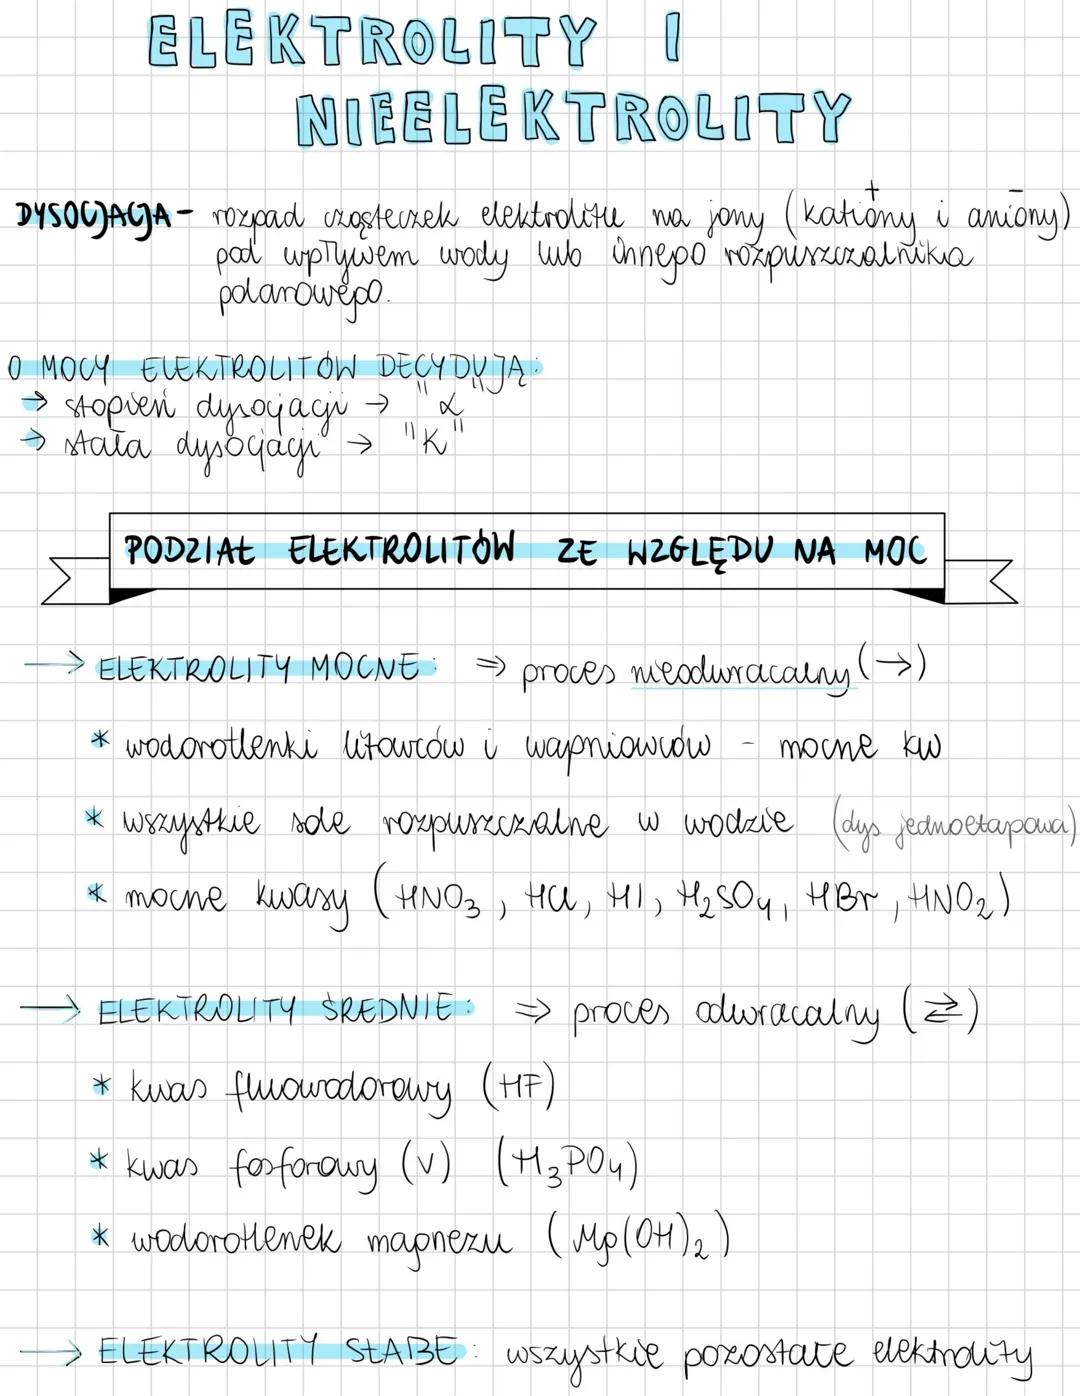 ELEKTROLITY I
NIEELEKTROLITY
DYSOCJACJA - rozpad cząsteczek elektrolitu na jony (kationy i aniony)
+ -
pod wpływem wody lub innego rozpuszczalnika
polarowego.
O MOCY ELEKTROLITÓW DECYDUJĄ:
→ stopień dysocjacji → "α"
→ stała dysocjacji → "K"
PODZIAŁ ELEKTROLITÓW ZE WZGLĘDU NA MOC
→ ELEKTROLITY MOCNE: ⇒ proces nieodwracalny (→)
* wodorotlenki litowców i wapniowców - mocne kw
* wszystkie sole rozpuszczalne w wodzie (dys jednoetapowa)
* mocne kwasy (HNO₃, HCl, HI, H₂SO₄, HBr, HNO₂)
→ ELEKTROLITY ŚREDNIE: ⇒ proces odwracalny (⇄)
* kwas fluowodorowy (HF)
* kwas fosforowy (V) (H₃PO₄)
* wodorotlenek magnezu (Mg(OH)₂)
→ ELEKTROLITY SŁABE: wszystkie pozostałe elektrolity